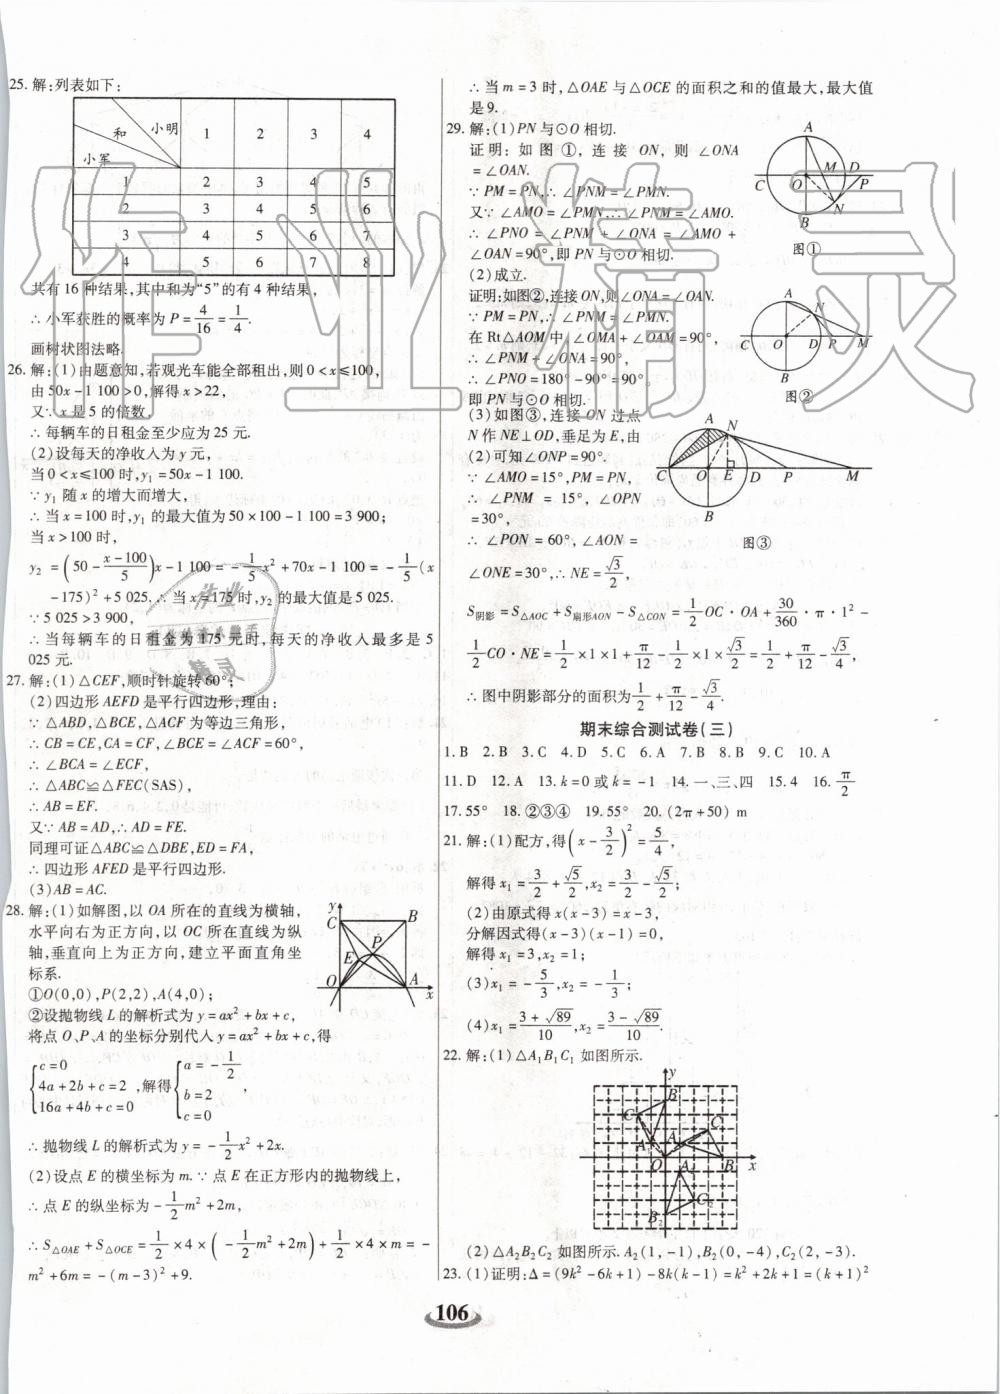 25. 解:列表如下:
和 小明 1 2 3 4
小军
1 2 3 4 5
2 3 4 5 6
3 4 5 6 7
4 5 6 7 8
共有 16 种结果,其中和为“5”的有 4 种结果,
∴ 小军获胜的概率为 P = 4/16 = 1/4.
画树状图法略.
26. 解:(1)由题意知,若观光车能全部租出,则 0 < x ≤ 100,
由 50x - 1 100 > 0,解得 x > 22,
又∵ x 是 5 的倍数,
∴ 每辆车的日租金至少应为 25 元.
(2)设每天的净收入为 y 元,
当 0 < x ≤ 100 时,y₁ = 50x - 1 100.
∵ y₁ 随 x 的增大而增大,
∴ 当 x = 100 时,y₁ 的最大值为 50 × 100 - 1 100 = 3 900;
当 x > 100 时,
y₂ = (50 - (x-100)/5)x - 1 100 = -1/5 x² + 70x - 1 100 = -1/5 (x
- 175)² + 5 025. ∴ 当 x = 175 时,y₂ 的最大值是 5 025.
∵ 5 025 > 3 900,
∴ 当每辆车的日租金为 175 元时,每天的净收入最多是 5
025 元.
27. 解:(1)△CEF,顺时针旋转 60°;
(2)四边形 AEFD 是平行四边形,理由:
∵ △ABD,△BCE,△ACF 为等边三角形,
∴ CB = CE,CA = CF,∠BCE = ∠ACF = 60°,
∴ ∠BCA = ∠ECF,
∴ △ABC ≌ △FEC(SAS),
∴ AB = EF.
又∵ AB = AD,∴ AD = FE.
同理可证△ABC ≌ △DBE,ED = FA,
∴ 四边形 AFED 是平行四边形.
(3)AB = AC.
28. 解:(1)如解图,以 OA 所在的直线为横轴,
水平向右为正方向,以 OC 所在的直线为纵
轴,垂直向上为正方向,建立平面直角坐
标系.
y C B P E O A x
①O(0,0),P(2,2),A(4,0);
②设抛物线 L 的解析式为 y = ax² + bx + c,
将点 O、P、A 的坐标分别代入 y = ax² + bx + c,得
{c = 0 4a + 2b + c = 2 16a + 4b + c = 0 ,解得 {a = -1/2 b = 2 c = 0 ,
∴ 抛物线 L 的解析式为 y = -1/2 x² + 2x.
(2)设点 E 的横坐标为 m. ∵ 点 E 在正方形内的抛物线上,
∴ 点 E 的纵坐标为 -1/2 m² + 2m,
∴ S△OAE + S△OCE = 1/2 × 4 × (-1/2 m² + 2m) + 1/2 × 4 × m = -
m² + 6m = -(m - 3)² + 9.
∴ 当 m = 3 时,△OAE 与△OCE 的面积之和的值最大,最大值
是 9.
29. 解:(1)PN 与⊙O 相切.
证明:如图①,连接 ON,则 ∠ONA
= ∠OAN.
∵ PM = PN,∴ ∠PNM = ∠PMN.
又∵ ∠AMO = ∠PMN,∴ ∠PNM = ∠AMO.
∴ ∠PNO = ∠PNM + ∠ONA = ∠AMO +
∠OAN = 90°,即 PN 与⊙O 相切.
A M D C O P N B
图①
(2)成立.
证明:如图②,连接 ON,则∠ONA = ∠OAN.
∵ PM = PN,∴ ∠PNM = ∠PMN.
在 Rt△AOM 中,∠OMA + ∠OAM = 90°,
∴ ∠PNM + ∠ONA = 90°.
∴ ∠PNO = 180° - 90° = 90°.
即 PN 与⊙O 相切.
A N C O D P M B
图②
(3)如图③,连接 ON 过点
N 作 NE⊥OD,垂足为 E,由
(2)可知∠ONP = 90°.
∵ ∠AMO = 15°,PM = PN,
∴ ∠PNM = 15°,∠OPN
= 30°,
∴ ∠PON = 60°,∠AON =
∠ONE = 30°,∴ NE = √3/2,
A N C O E D P M B
图③
S阴影 = S△AOC + S扇形AON - S△CON = 1/2 OC · OA + 30/360 · π · 1² -
1/2 CO · NE = 1/2 × 1 × 1 + π/12 - 1/2 × 1 × √3/2 = 1/2 + π/12 - √3/4,
∴ 图中阴影部分的面积为 1/2 + π/12 - √3/4.
期末综合测试卷(三)
1. B 2. B 3. C 4. D 5. C 6. A 7. B 8. B 9. C 10. A
11. D 12. A 13. k = 0 或 k = -1 14. 一、三、四 15. 4 16. π/2
17. 55° 18. ②③④ 19. 55° 20. (2π + 50) m
21. 解:(1)配方,得(x - 3/2)² = 5/4,
解得 x₁ = 3/2 + √5/2,x₂ = 3/2 - √5/2;
(2)由原式得 x(x - 3) = x - 3,
分解因式得(x - 3)(x - 1) = 0,
解得 x₁ = 3,x₂ = 1;
(3)x₁ = -5/3,x₂ = -1/3;
(4)x₁ = (3 + √89)/10,x₂ = (3 - √89)/10.
22. 解:(1)△A₁B₁C₁ 如图所示.
y B₁ C₁ A₁ C A O B x A₂ C₂ B₂
(2)△A₂B₂C₂ 如图所示. A₂(1, -1),B₂(0, -4),C₂(2, -3).
23. (1)证明:Δ = (9k² - 6k + 1) - 8k(k - 1) = k² + 2k + 1 = (k + 1)²
106
作业精灵
作业
精灵